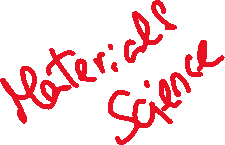 Materials
Science